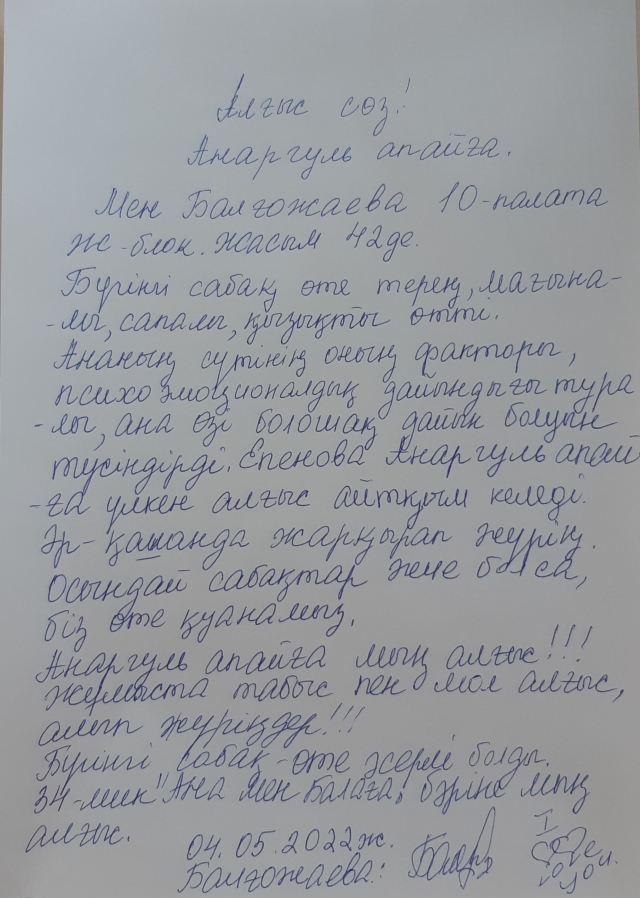 Алғыс сөз!
Анаргуль апайға.
Мен Балғожаева 10-палата
ж-блок. жасым 42де.
Бүгінгі сабақ өте терең, мағына-
-лы, сапалы, қызықты өтті.
Ананың сүтінің оның факторы,
психоэмоционалдық дайындығы тура
-лы, ана өзі болошақ дайын болуын
түсіндірді. Епенова Анаргуль апай
-ға үлкен алғыс айтқым келеді.
Әр-қашанда жарқырап жүрің.
Осындай сабақтар және болса,
біз өте қуанамыз.
Анаргуль апайға мың алғыс!!!
жұмыста табыс пен мол алғыс,
алып жүріңдер!!!
Бүгінгі сабақ-өте әсерлі болды.
"Ана мен Балаға" бәріне мың
алғыс.
04.05.2022ж.
Балғожаева: